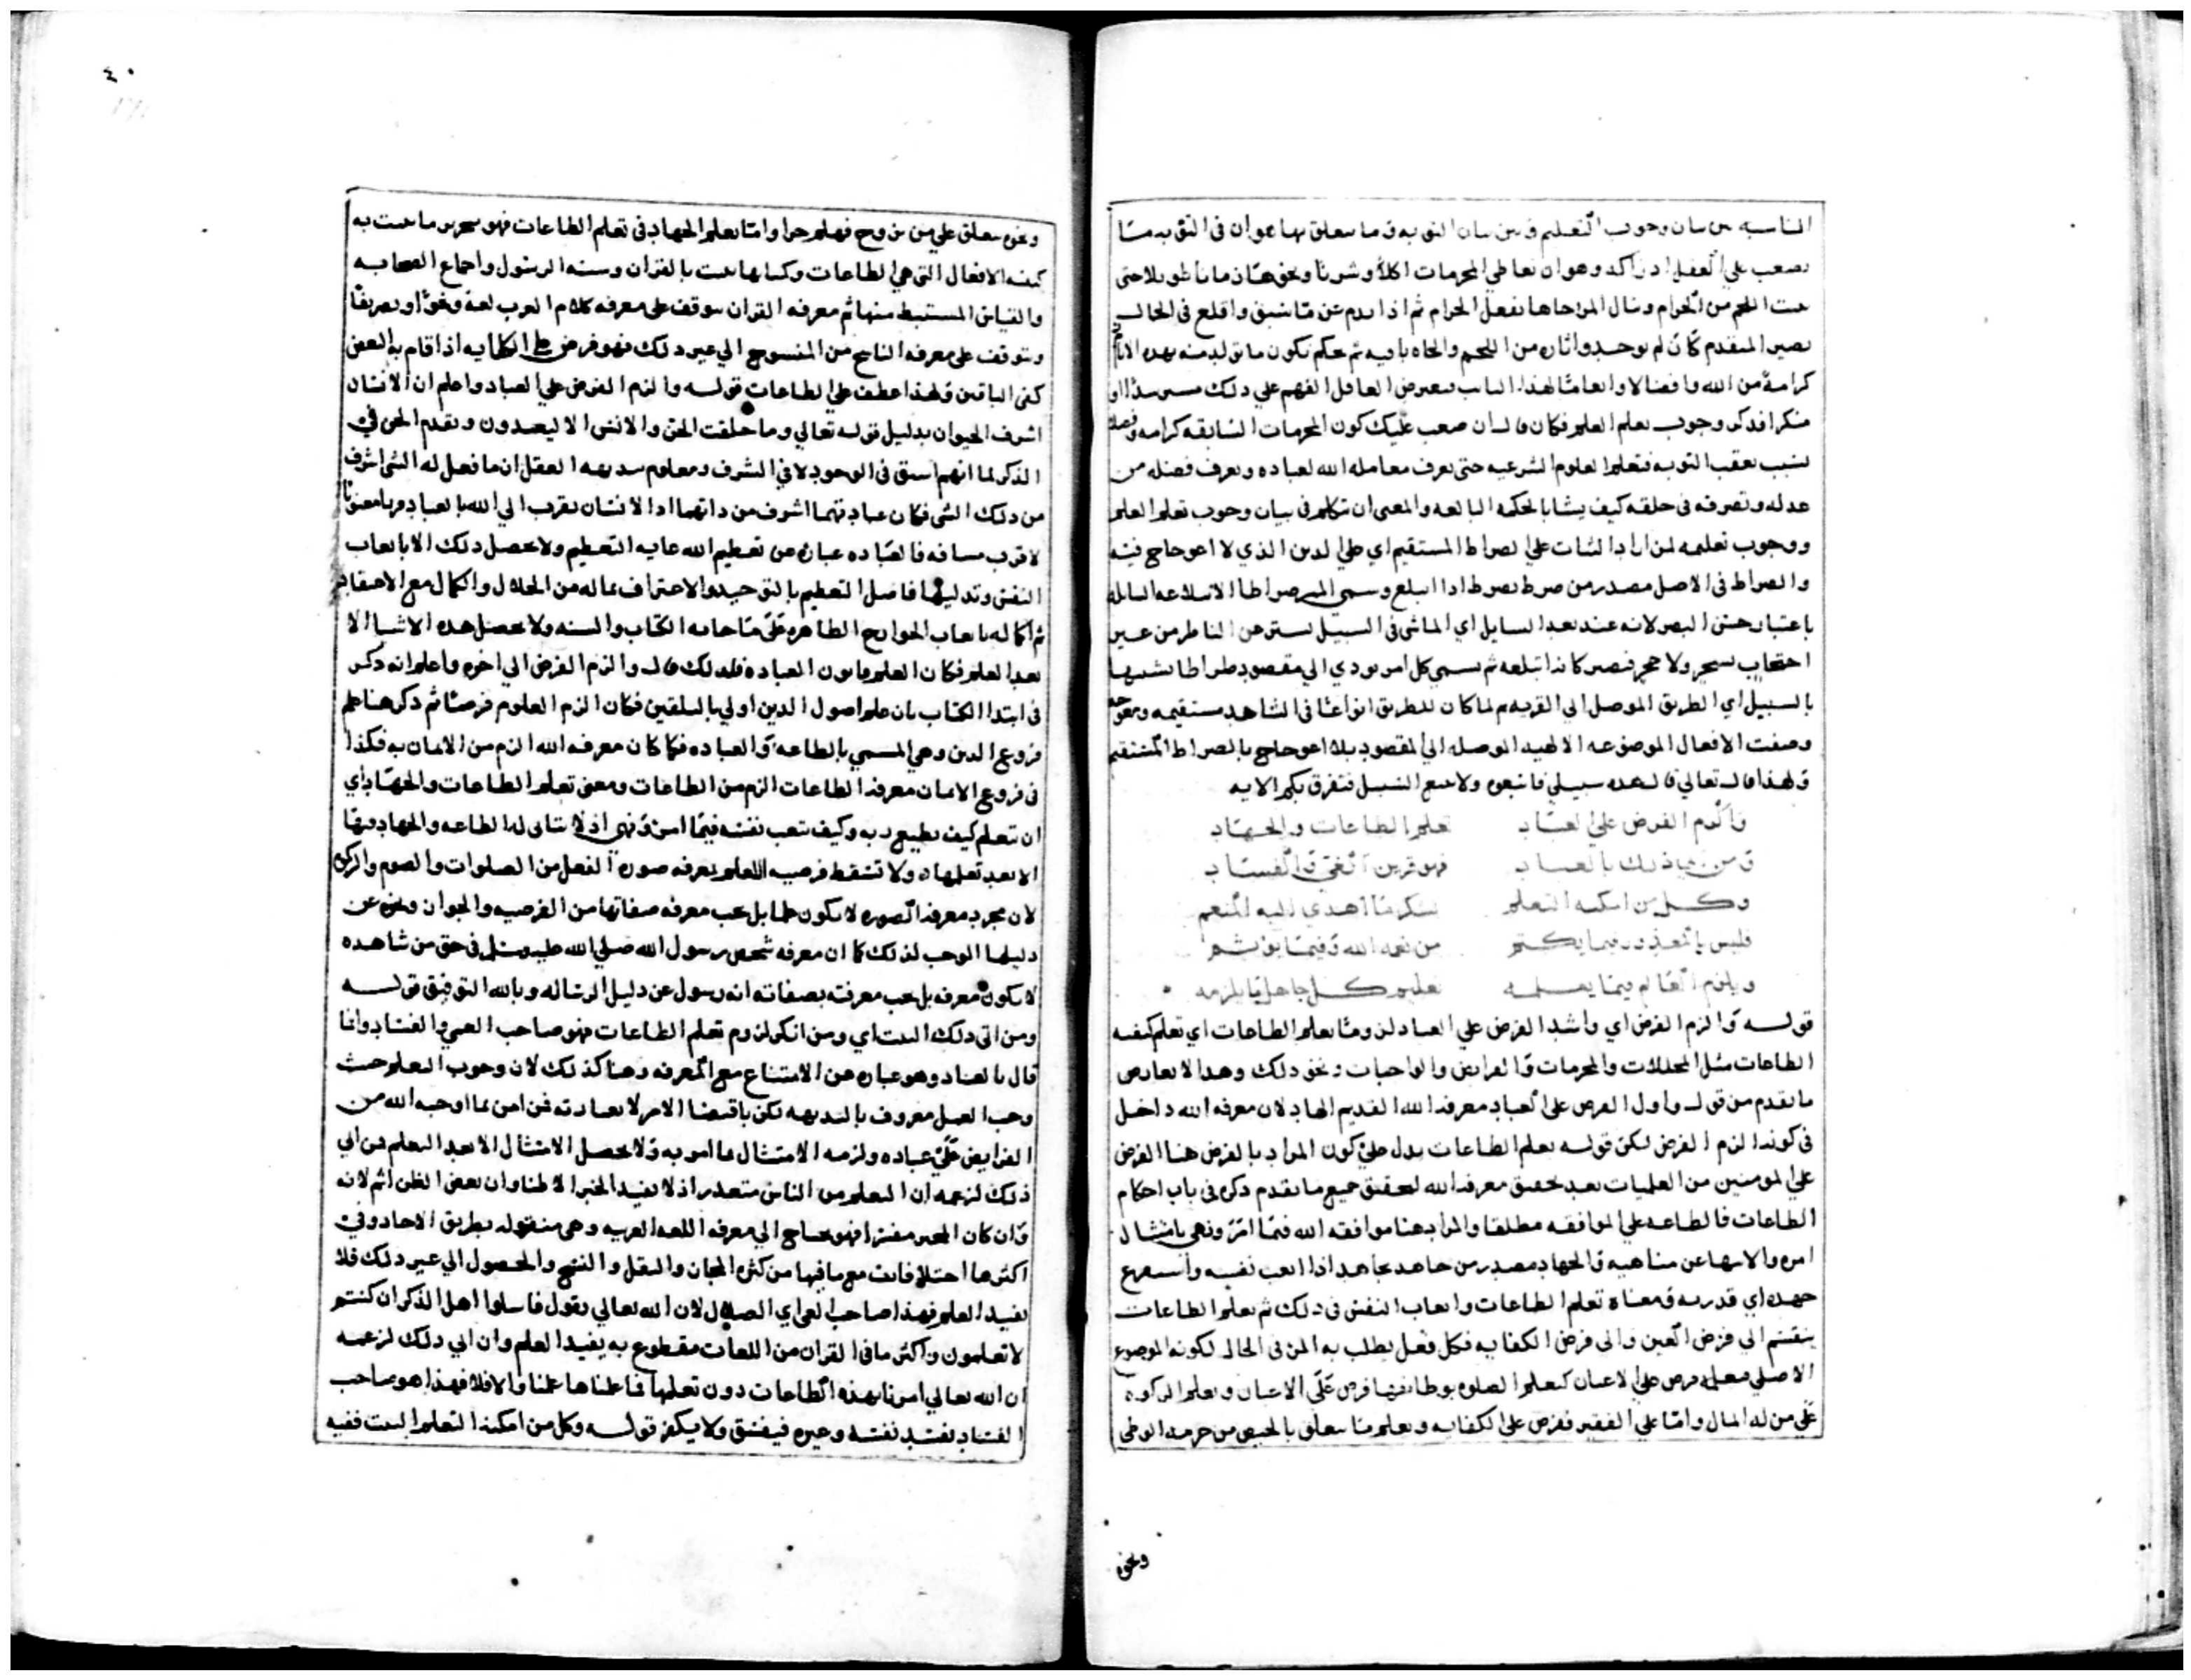 المناسبه بين بيان وجوب التعليم وبين بيان التوبه وما يتعلق بها هو ان في التوبه مسا
يصعب علي العقل ادراكه وهو ان تعاطي المحرمات اكلا وشربا ونحوهما زمانا طويلا حتى
نبت اللحم من الحرام ونال المرا جاها بفعل الحرام ثم اذا ندم عن ما سبق واقلع في الحال
يصير المتقدم كان لم يوجد واثاره من اللحم والجاه باقيه ثم يحكم بكون ما تولد منه بهذه الاثار
كرامة من الله وافضالا وانعاما لهذا التايب فيعرض العاقل الفهم علي ذلك
منكرا فذكر وجوب تعلم العلم فكان قال ان صعب عليك كون المحرمات السابقه كرامه وفضلا
بسبب تعقب التوبه فتعلم العلوم الشرعيه حتى تعرف معامله الله لعباده وتعرف فضله من
عدله وتصرفه في خلقه كيف يشا بالحكمه البالغه والمعنى ان نتكلم في بيان وجوب تعلم العلم
ووجوب تعليمه لمن اراد الثبات علي الصراط المستقيم اي علي الدين الذي لا اعوجاج فيه
والصراط في الاصل مصدر من صرط يصرط اذا ابتلع وسمي الممر صراطا لابتلاعه السابله
باعتبار حس البصر لانه عند بعد السايل اي الماشي في السبيل يستر عن الناظر من غير
احتجاب بشجر ولا حجر فيصير كانه ابتلعه ثم يسمي كل امر يودي الي مقصود صراطا تشبيها
بالسبيل اي الطريق الموصل الي القريه ثم لما كان للطريق انواعا في الشاهد مستقيمه ومعوجه
وصفت الافعال الموضوعه الالهيه الموصله الي المقصود بلا اعوجاج بالصراط المستقيم
ولهذا قال تعالي قل هذه سبيلي فاتبعوه ولا تتبع السبل فتفرق بكم الايه
والزم الفرض علي العباد تعلم الطاعات والجهاد
ومن ابي ذلك بالعناد فهو قرين الغي والفساد
وكل من امكنه التعلم بشكر ما اهدي اليه المنعم
فليس بالمعذور فيما يكتم من نعمه الله وفيما يوشم
ويلزم العالم فيما يعلمه تعليم كل جاهل ما يلزمه
قوله والزم الفرض اي واشد الفرض علي العباد لزوما تعلم الطاعات اي تعلم كيفيه
الطاعات مثل المحللات والمحرمات والفرايض والواجبات ونحو ذلك وهذا لا يعارض
ما تقدم من قوله واول الفرض علي العباد معرفه الله القديم الهاد لان معرفه الله داخل
في كونه الزم الفرض لكن قوله تعلم الطاعات يدل علي كون المراد بالفرض هنا الفرض
علي المومنين من العلميات بعد تحقيق معرفه الله لتحقيق جميع ما تقدم ذكره في باب احكام
الطاعات فالطاعه علي الموافقه مطلقا والمراد هنا موافقه الله فيما امر ونهى بامتثال
امره والانتها عن مناهيه والجهاد مصدر من جاهد يجاهد اذا اتعب نفسه واستفرغ
جهده اي قدرته ومعناه تعلم الطاعات واتعاب النفس في ذلك ثم تعلم الطاعات
ينقسم الي فرض العين والى فرض الكفايه فكل فعل يطلب به المرء في الحال لكونه الموضوع
الاصلي فعلمه فرض علي الاعيان كتعلم الصلوه بوظايفها فرض علي الاعيان وتعلم الزكوه
علي من له المال واما علي الفقير ففرض علي الكفايه وتعلم ما يتعلق بالحيض من حرمه الوطي
ونحوه
٤٠
ونحوه يتعلق علي من تزوج فهلم جرا واما تعلم الجهاد في تعلم الطاعات فهو تحرير ما تثبت به
كيفيه الافعال التي هي الطاعات وكلها تثبت بالقران وسنه الرسول واجماع الصحابه
والقياس المستنبط منها ثم معرفه القران يتوقف على معرفه كلام العرب لغة ونحوا وتصريفا
ويتوقف على معرفه الناسخ من المنسوخ الي غير ذلك فهو فرض علي الكفايه اذا قام به البعض
كفى الباقين ولهذا عطف علي الطاعات قوله والزم الفرض علي العباد واعلم ان الانسان
اشرف الحيوان بدليل قوله تعالي وما خلقت الجن والانس الا ليعبدون وتقدم الجن في
الذكر لما انهم اسبق في الوجود لا في الشرف ومعلوم ببديهه العقل ان ما فعل له الشي اشرف
من ذلك الشي فكان عبادتهما اشرف من ذاتهما اذ الانسان يقرب الي الله بالعباده قربا معنويا
لا قرب مسافه فالعباده عباره عن تعظيم الله غايه التعظيم ولا يحصل ذلك الا باتعاب
النفس وتذليلها فاصل التعظيم بالتوحيد والاعتراف بما له من الجلال والكمال مع الاعتقاد
ثم اكماله باتعاب الجوارح الظاهره علي ما جا به الكتاب والسنه ولا يحصل هذه الاشيا الا
بعد العلم فكان العلم قانون العباده فلذلك قال والزم الفرض الي اخره واعلم انه ذكر
في ابتدا الكتاب بان علم اصول الدين اولي بالتلقين فكان الزم العلوم فرضا ثم ذكر هنا علم
فروع الدين وهي المسمي بالطاعه والعباده فكما كان معرفه الله الزم من الايمان به فكذا
في فروع الايمان معرفه الطاعات الزم من الطاعات ومعنى تعلم الطاعات والجهاد اي
ان تتعلم كيف تطيع ربه وكيف تتعب نفسه فيما امر ونهى اذ لا يتاتى له الطاعه والجهاد فيها
الا بعد تعلمها ولا تسقط فرضيه العلم بمعرفه صوره الفعل من الصلوات والصوم والزكوه
لان مجرد معرفه الصوره لا يكون علما بل يجب معرفه صفاتها من الفرضيه والجواز ونحوه عن
دليلها الموجب لذلك كما ان معرفه شخص رسول الله صلي الله عليه وسلم في حق من شاهده
لا يكون معرفه بل يجب معرفته بصفاته انه رسول عن دليل الرساله وبالله التوفيق قوله
ومن ابى ذلك البيت اي ومن انكر لزوم تعلم الطاعات فهو صاحب العمي والفساد وانما
قال بالعناد وهو عباره عن الامتناع مع المعرفه وهنا كذلك لان وجوب التعلم حيث
وجب العمل معروف بالبديهه لكن باقتضا الامر لا بعبارته فمن امن بما اوجبه الله من
الفرايض علي عباده ولزمه الامتثال بما امر به ولا يحصل الامتثال الا بعد التعلم فمن ابى
ذلك لزعمه ان التعلم من الناس متعذر اذ لا يفيد الخبر الا ظنا وان بعض الظن اثم لانه
وان كان المخبر مفسرا فهو يحتاج الي معرفه اللغه العربيه وهي منقوله بطريق الاحاد وفي
اكثرها اختلافات مع ما فيها من كثره المجاز والنقل و الي غير ذلك فلا
يفيد العلم فهذا صاحب العمي اي الضلال لان الله تعالي يقول فاسلوا اهل الذكر ان كنتم
لا تعلمون واكثر ما في القران من اللغات مقطوع به يفيد العلم وان ابى ذلك لزعمه
ان الله تعالي امرنا بهذه الطاعات دون تعلمها فاعلمناها عملنا والا فلا فهذا هو صاحب
الفساد يفسد نفسه وغيره فيفسق ولا يكفر قوله وكل من امكنه التعلم البيت ففيه